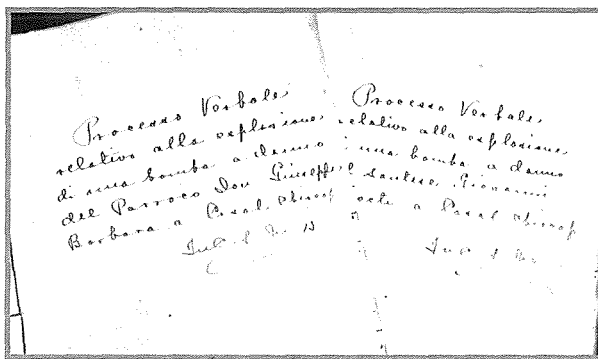 Processo Verbale
relativo alla esplosione
di una bomba a danno
del Parroco Don Giuseppe
Barbara a Casal
Processo Verbale
relativo alla esplosione
una bomba a danno
Giovanni
a Casal